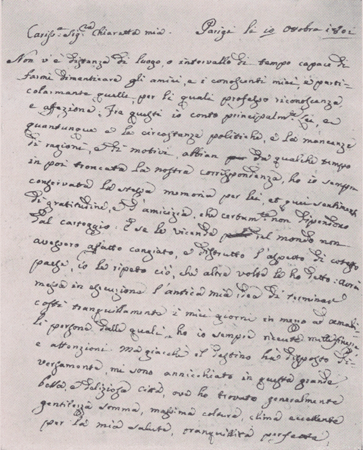 Cariss.ᵃ Sig.ʳᵃ Chiaretta mia. Parigi le 10 Ottobre 1802
Non v'è distanza di luogo, o intervallo di tempo capace di
farmi dimenticare gli amici, e i conoscenti miei, e parti-
colarmente quelle, per li quali professo riconoscenza
e affezione. Fra questi io conto principalm.ᵉ Lei, e
quantunque e le circostanze politiche, e la mancanza
di ragione, e di motivo, abbian da qualche tempo
in poi troncata la nostra corrispondenza, ho io sempre
conservata la stessa memoria per lei, et quei sentimen
di gratitudine, e d'amicizia, che certam.ᵉ non dipendono
dal carteggio. E se le vicende del mondo non
avessero affatto cangiato, e distrutto l'aspetto di cotesto
paese, io le ripeto ciò, che altra volta le ho detto: avrei
messa in esecuzione l'antica mia idea di terminar
costì tranquillamente i miei giorni in mezzo ad amabi-
li persone dalle quali ho io sempre ricevute mille finezze
e attenzioni. Ma giacchè il destino ha disposto di-
versamente, mi sono annicchiato in questa grande
bella, e deliziosa Città, ove ho trovato generalmente
gentilezza somma, massima coltura, clima eccellente
per la mia salute, tranquillità perfetta,